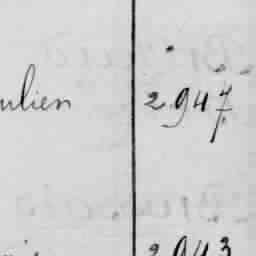 ulien 2.947
2.943